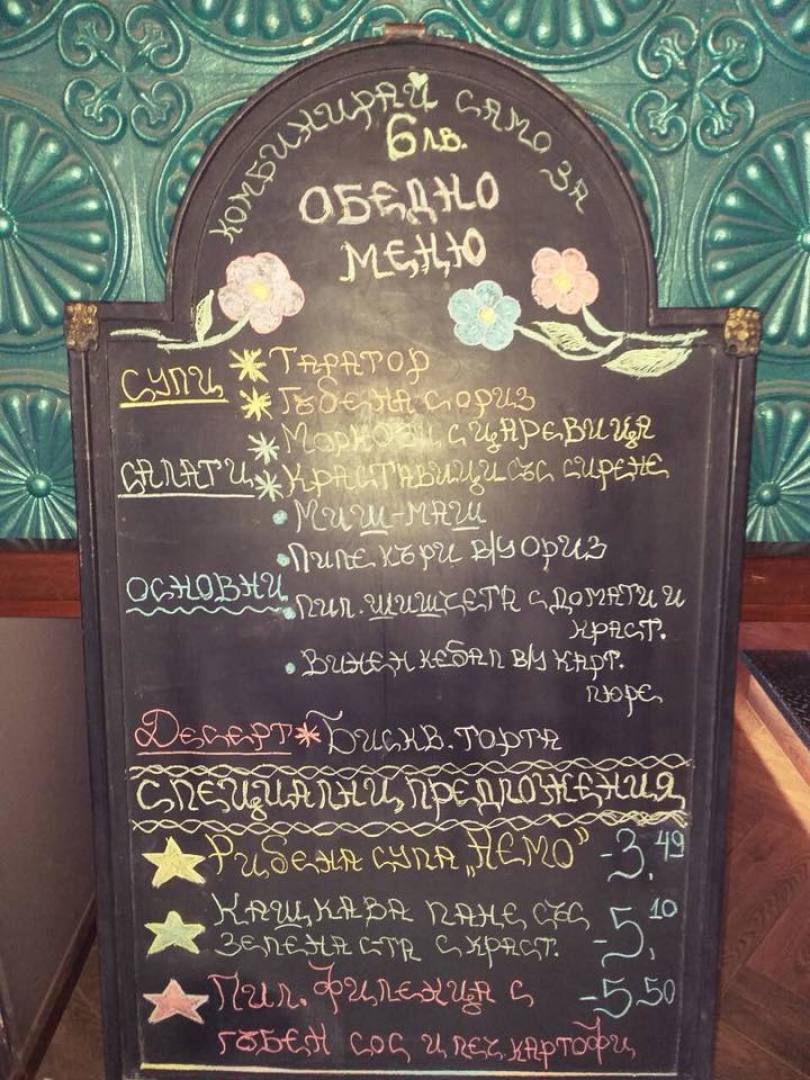 КОМБИНИРАЙ САМО ЗА
6 лв.
ОБЕДНО
МЕНЮ
СУПИ * ТАРАТОР
* ГЪБЕНА С ОРИЗ
* МОРКОВИ С ЦАРЕВИЦА
САЛАТИ * КРАСТАВИЦИ СЪС СИРЕНЕ
• МИШ-МАШ
• ПИЛЕ КЪРИ В/У ОРИЗ
ОСНОВНИ • ПИЛ. ШИШЧЕТА С ДОМАТИ И
КРАСТ.
• ВИНЕН КЕБАП В/У КАРТ.
ПЮРЕ
ДЕСЕРТ * БИСКВ. ТОРТА
СПЕЦИАЛНИ ПРЕДЛОЖЕНИЯ
РИБЕНА СУПА „НЕМО" -3,49
КАШКАВА ПАНЕ СЪС
ЗЕЛЕНА СТА С КРАСТ. -5,10
ПИЛ. ФИЛЕНЦА С -5.50
ГЪБЕН СОС И ПЕЧ. КАРТОФИ